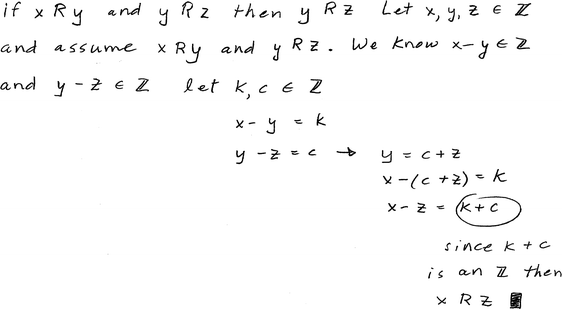 if x R y and y R z then y R z Let x, y, z ∈ ℤ
and assume x R y and y R z. We know x-y ∈ ℤ
and y - z ∈ ℤ let k, c ∈ ℤ
x - y = k
y - z = c → y = c + z
x - (c + z) = k
x - z = k + c
since k + c
is an ℤ then
x R z ∎